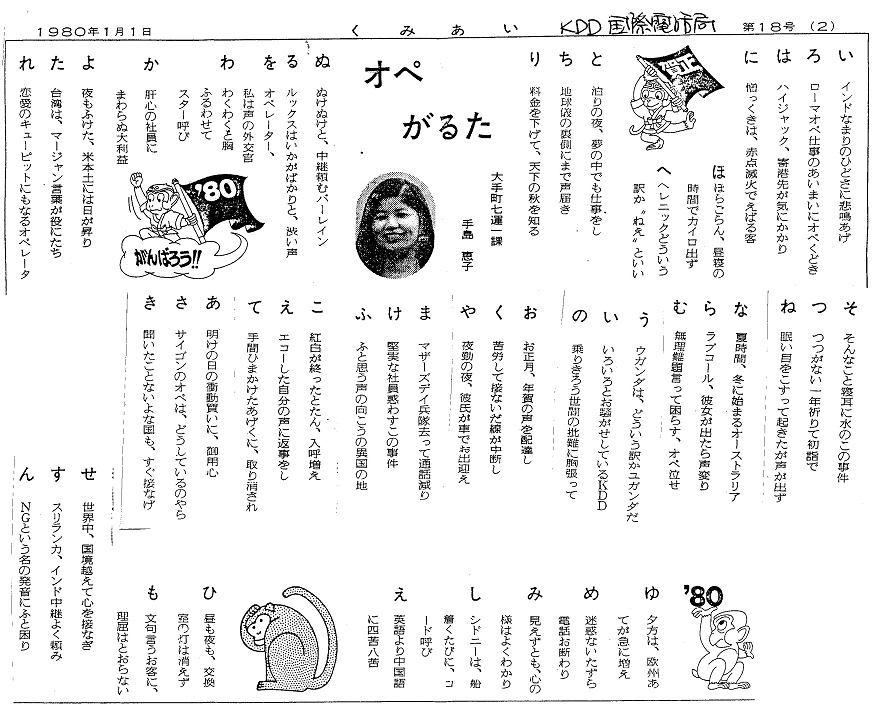 1980年1月1日
くみあい
KDD 国際電話局
第18号 (2)
オペがるた
大手町七運一課
手島 恵子
い インドなまりのひどさに悲鳴あげ
ろ ローマオペ仕事のあいまいにオペくどき
は ハイジャック、寄港先が気にかかり
に 憎っくきは、赤点滅火でえばる客
賀正
ほ ほらごらん、昼寝の
時間でカイロ出ず
へ ヘレニックどういう
訳か〝ねえ〟といい
と 泊りの夜、夢の中でも仕事をし
ち 地球儀の裏側にまで声届き
り 料金を下げて、天下の秋を知る
ぬ ぬけぬけと、中継頼むバーレイン
る ルックスはいかがばかりと、渋い声
を オペレーター、
私は声の外交官
わ わくわくと胸
ふるわせて
スター呼び
か 肝心の社員に
まわらぬ大利益
'80
がんばろう!!
よ 夜もふけた、米本土には日が昇り
た 台湾は、マージャン言葉が役にたち
れ 恋愛のキューピットにもなるオペレータ
そ そんなこと寝耳に水のこの事件
つ つつがない一年祈りて初詣で
ね 眠い目をこすって起きたが声が出ず
な 夏時間、冬に始まるオーストラリア
ら ラブコール、彼女が出たら声変り
む 無理難題言って困らす、オペ泣せ
う ウガンダは、どういう訳かユガンダだ
い いろいろとお騒がせしているKDD
の 乗りきろう世間の批難に胸張って
お お正月、年賀の声を配達し
く 苦労して接ないだ線が中断し
や 夜勤の夜、彼氏が車でお出迎え
ま マザーズデイ兵隊去って通話減り
け 堅実な社員惑わすこの事件
ふ ふと思う声の向こうの異国の地
こ 紅白が終ったとたん、入呼増え
え エコーした自分の声に返事をし
て 手間ひまかけたあげくに、取り消され
あ 明けの日の衝動買いに、御用心
さ サイゴンのオペは、どうしているのやら
き 聞いたことないよな国も、すぐ接なげ
'80
ゆ 夕方は、欧州あ
てが急に増え
め 迷惑ないたずら
電話お断わり
み 見えずとも、心の
様はよくわかり
し シドニーは、船
着くたびに、コ
ード呼び
え 英語より中国語
に四苦八苦
ひ 昼も夜も、交換
室の灯は消えず
も 文句言うお客に、
理屈はとおらない
せ 世界中、国境越えて心を接なぎ
す スリランカ、インド中継よく頼み
ん NGという名の発音にふと困り